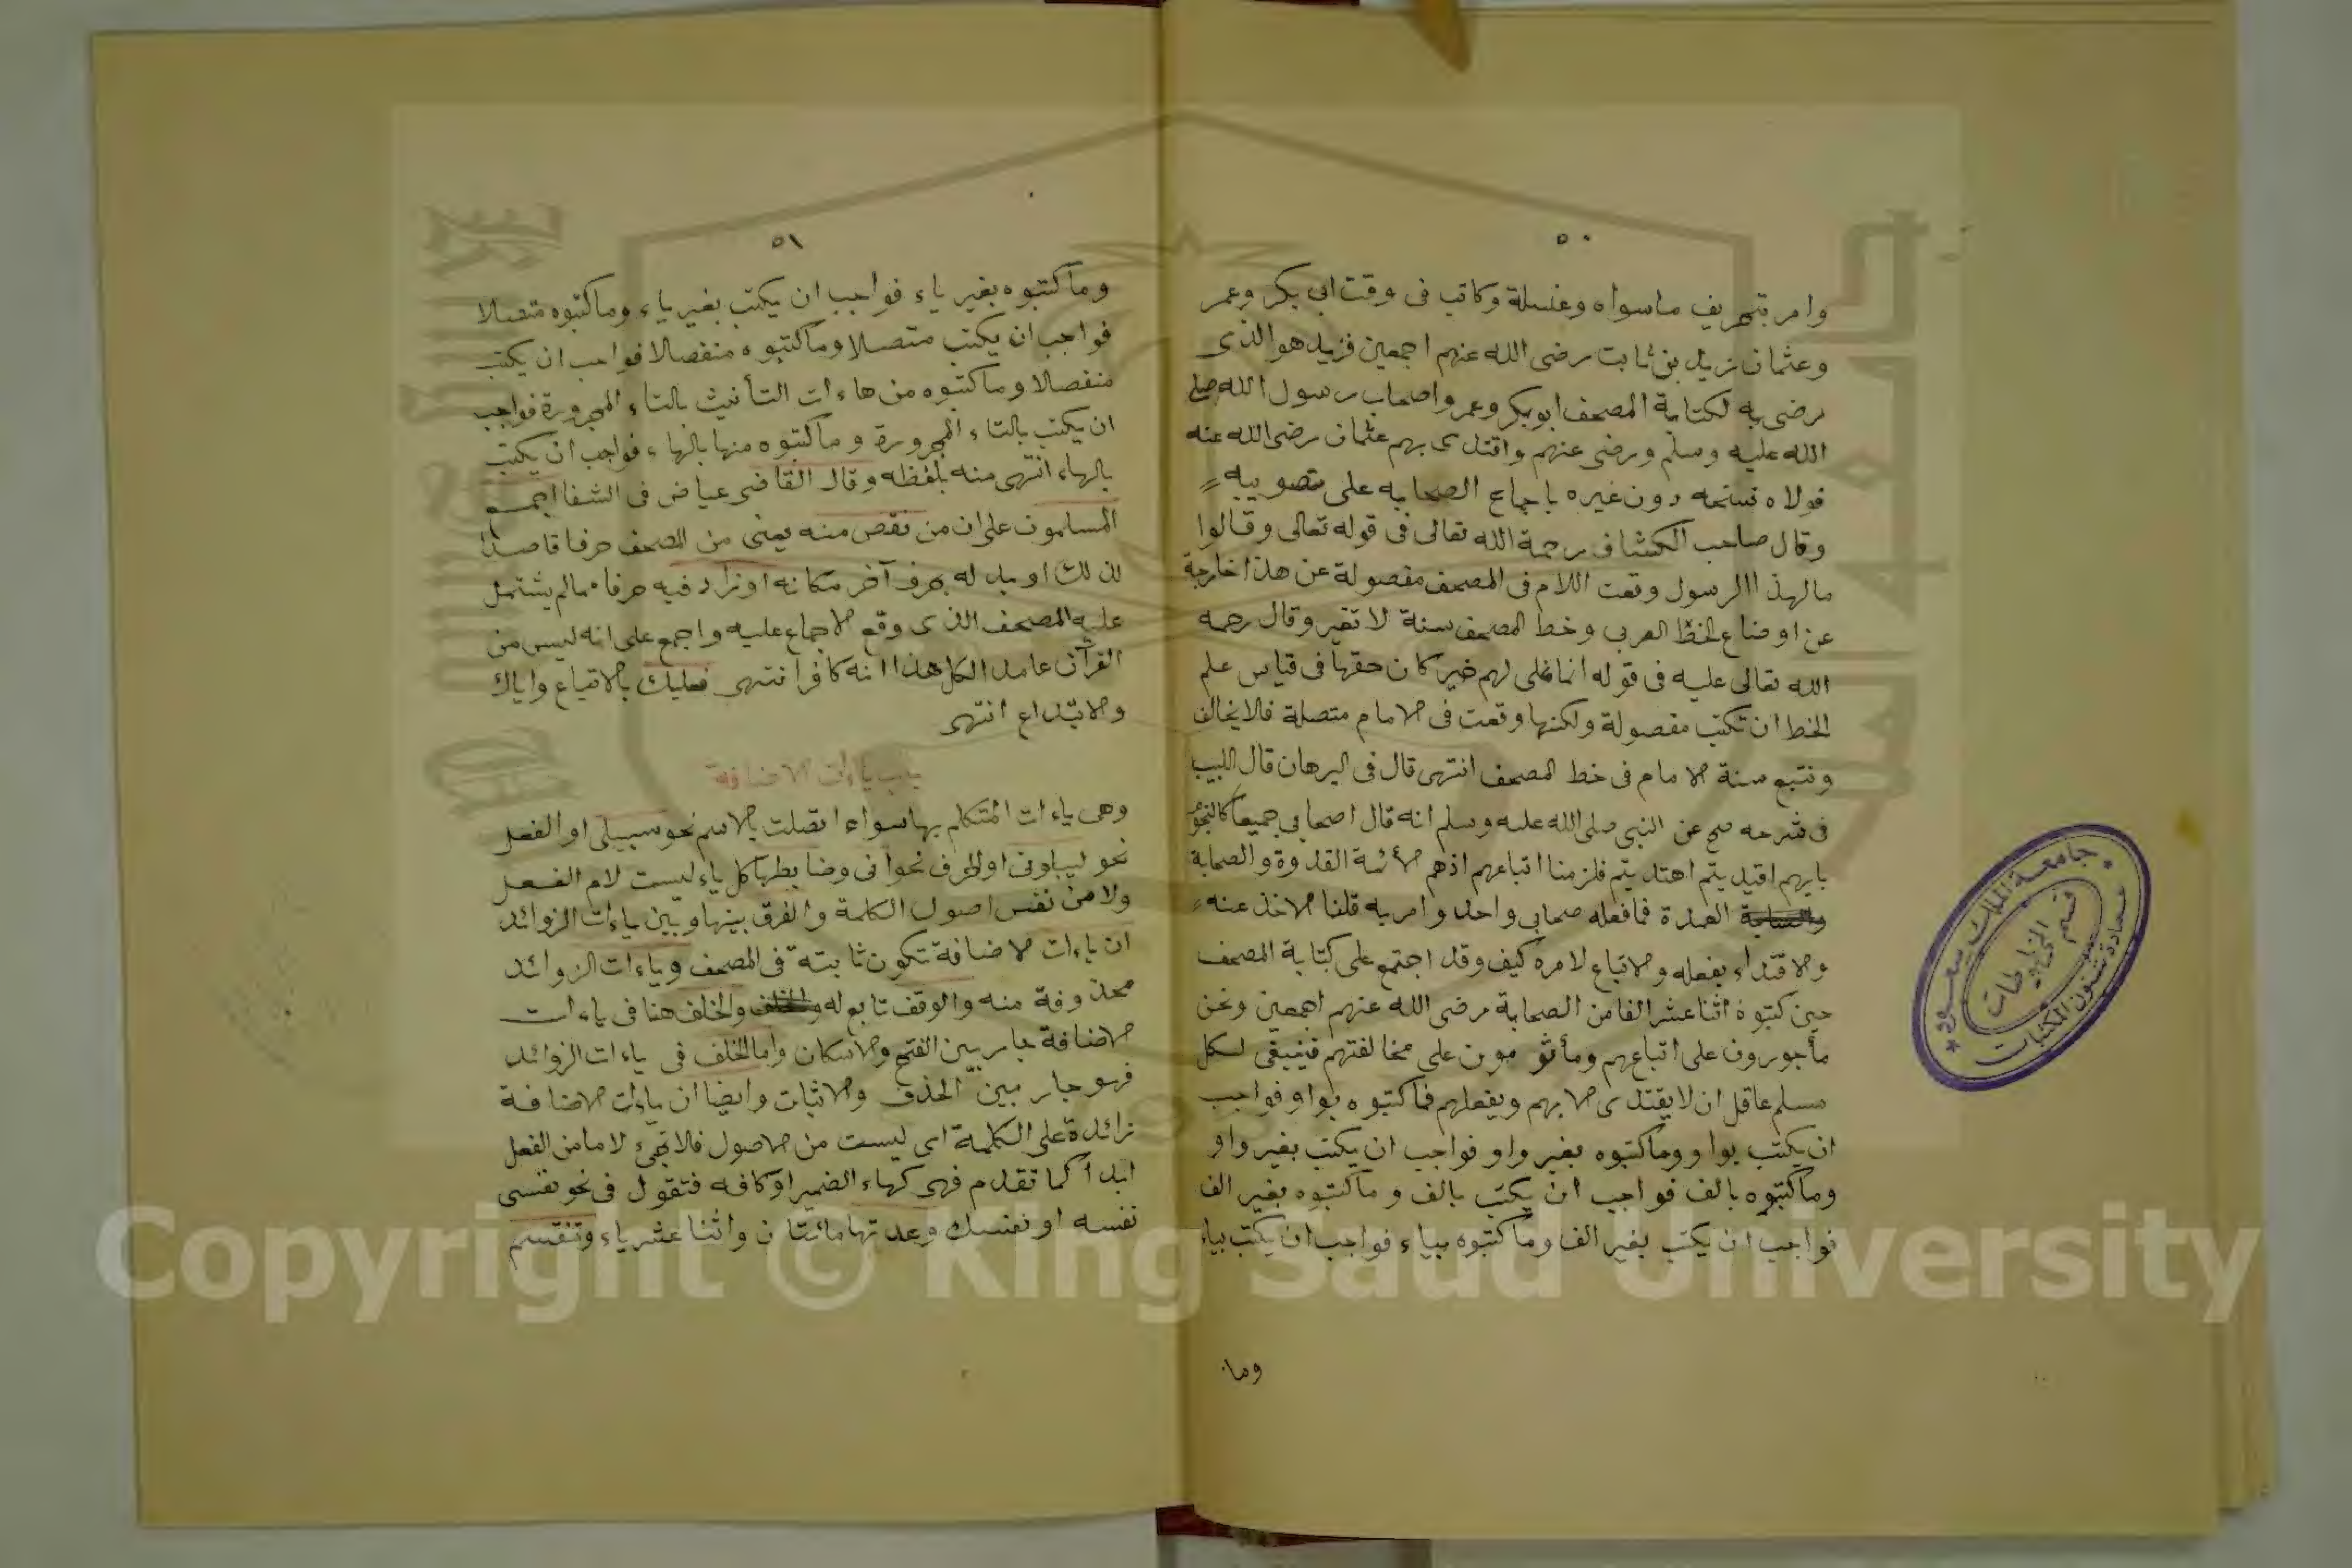 ٥٠
وامر بتحريف ماسواه وغسله وكاتب فى وقت ابى بكر وعمر
وعثمان زيد بن ثابت رضى الله عنهم اجمعين فزيد هو الذى
رضى به لكتابة المصحف ابوبكر وعمر واصحاب رسول الله صلى
الله عليه وسلم ورضى عنهم واقتدى بهم عثمان رضى الله عنه
فولاه نسخه دون غيره باجماع الصحابه على تصويبه
وقال صاحب الكشاف رحمة الله تعالى فى قوله تعالى وقالوا
مالهذا الرسول وقعت اللام فى المصحف مفصولة عن هذا خارجة
عن اوضاع الخط العربى وخط المصحف سنة لا تغير وقال رحمه
الله تعالى عليه فى قوله انما نملى لهم خير كان حقها فى قياس علم
الخط ان تكتب مفصولة ولكنها وقعت فى الامام متصلة فلا يخالف
ونتبع سنة الامام فى خط المصحف انتهى قال فى البرهان قال اللبيب
فى شرحه صح عن النبى صلى الله عليه وسلم انه قال اصحابى جميعا كالنجوم
بايهم اقتديتم اهتديتم فلزمنا اتباعهم اذهم الأئمة القدوة والصحابة
العمدة فما فعله صحابى واحد وامر به قلنا الاخذ عنه
والاقتداء بفعله والاتباع لامره كيف وقد اجتمع على كتابة المصحف
حين كتبوه اثنا عشر الفا من الصحابة رضى الله عنهم اجمعين ونحن
مأجورون على اتباعهم ومأثومون على مخالفتهم فينبغى لكل
مسلم عاقل ان لا يقتدى الا بهم وبفعلهم فما كتبوه بواو فواجب
ان يكتب بواو وما كتبوه بغير واو فواجب ان يكتب بغير واو
وما كتبوه بالف فواجب ان يكتب بالف وما كتبوه بغير الف
فواجب ان يكتب بغير الف وما كتبوه بياء فواجب ان يكتب بياء
وما
٥١
وما كتبوه بغير ياء فواجب ان يكتب بغير ياء وما كتبوه متصلا
فواجب ان يكتب متصلا وما كتبوه منفصلا فواجب ان يكتب
منفصلا وما كتبوه من هاءات التأنيث بالتاء المجرورة فواجب
ان يكتب بالتاء المجرورة وما كتبوه منها بالهاء فواجب ان يكتب
بالهاء انتهى منه بلفظه وقال القاضى عياض فى الشفا اجمع
المسلمون على ان من نقص منه يعنى من المصحف حرفا قاصدا
لذلك او بدله بحرف آخر مكانه او زاد فيه حرفا مما لم يشتمل
عليه المصحف الذى وقع الاجماع عليه واجمع على انه ليس من
القرآن عامدا لكل هذا انه كافر انتهى فعليك بالاتباع واياك
والابتداع انتهى
باب ياءات الاضافة
وهى ياءات المتكلم بها سواء اتصلت بالاسم نحو سبيلى او الفعل
نحو ليبلونى او الحرف نحو انى وضابطها كل ياء ليست لام الفعل
ولا من نفس اصول الكلمة والفرق بينها وبين ياءات الزوائد
ان ياءات الاضافة تكون ثابتة فى المصحف وياءات الزوائد
محذوفة منه والوقف تابع له والخلف هنا فى ياءات
الاضافة جار بين الفتح والاسكان واما الخلف فى ياءات الزوائد
فهو جار بين الحذف والاثبات وايضا ان ياءات الاضافة
زائدة على الكلمة اى ليست من الاصول فلا تجئ لاما من الفعل
ابدا كما تقدم فهى كهاء الضمير او كافه فتقول فى نحو نفسى
نفسه او نفسك وعدتها مائتان واثنا عشر ياء وتنقسم
جامعة الملك سعود
قسم المخطوطات
عمادة شئون المكتبات
Copyright © King Saud University